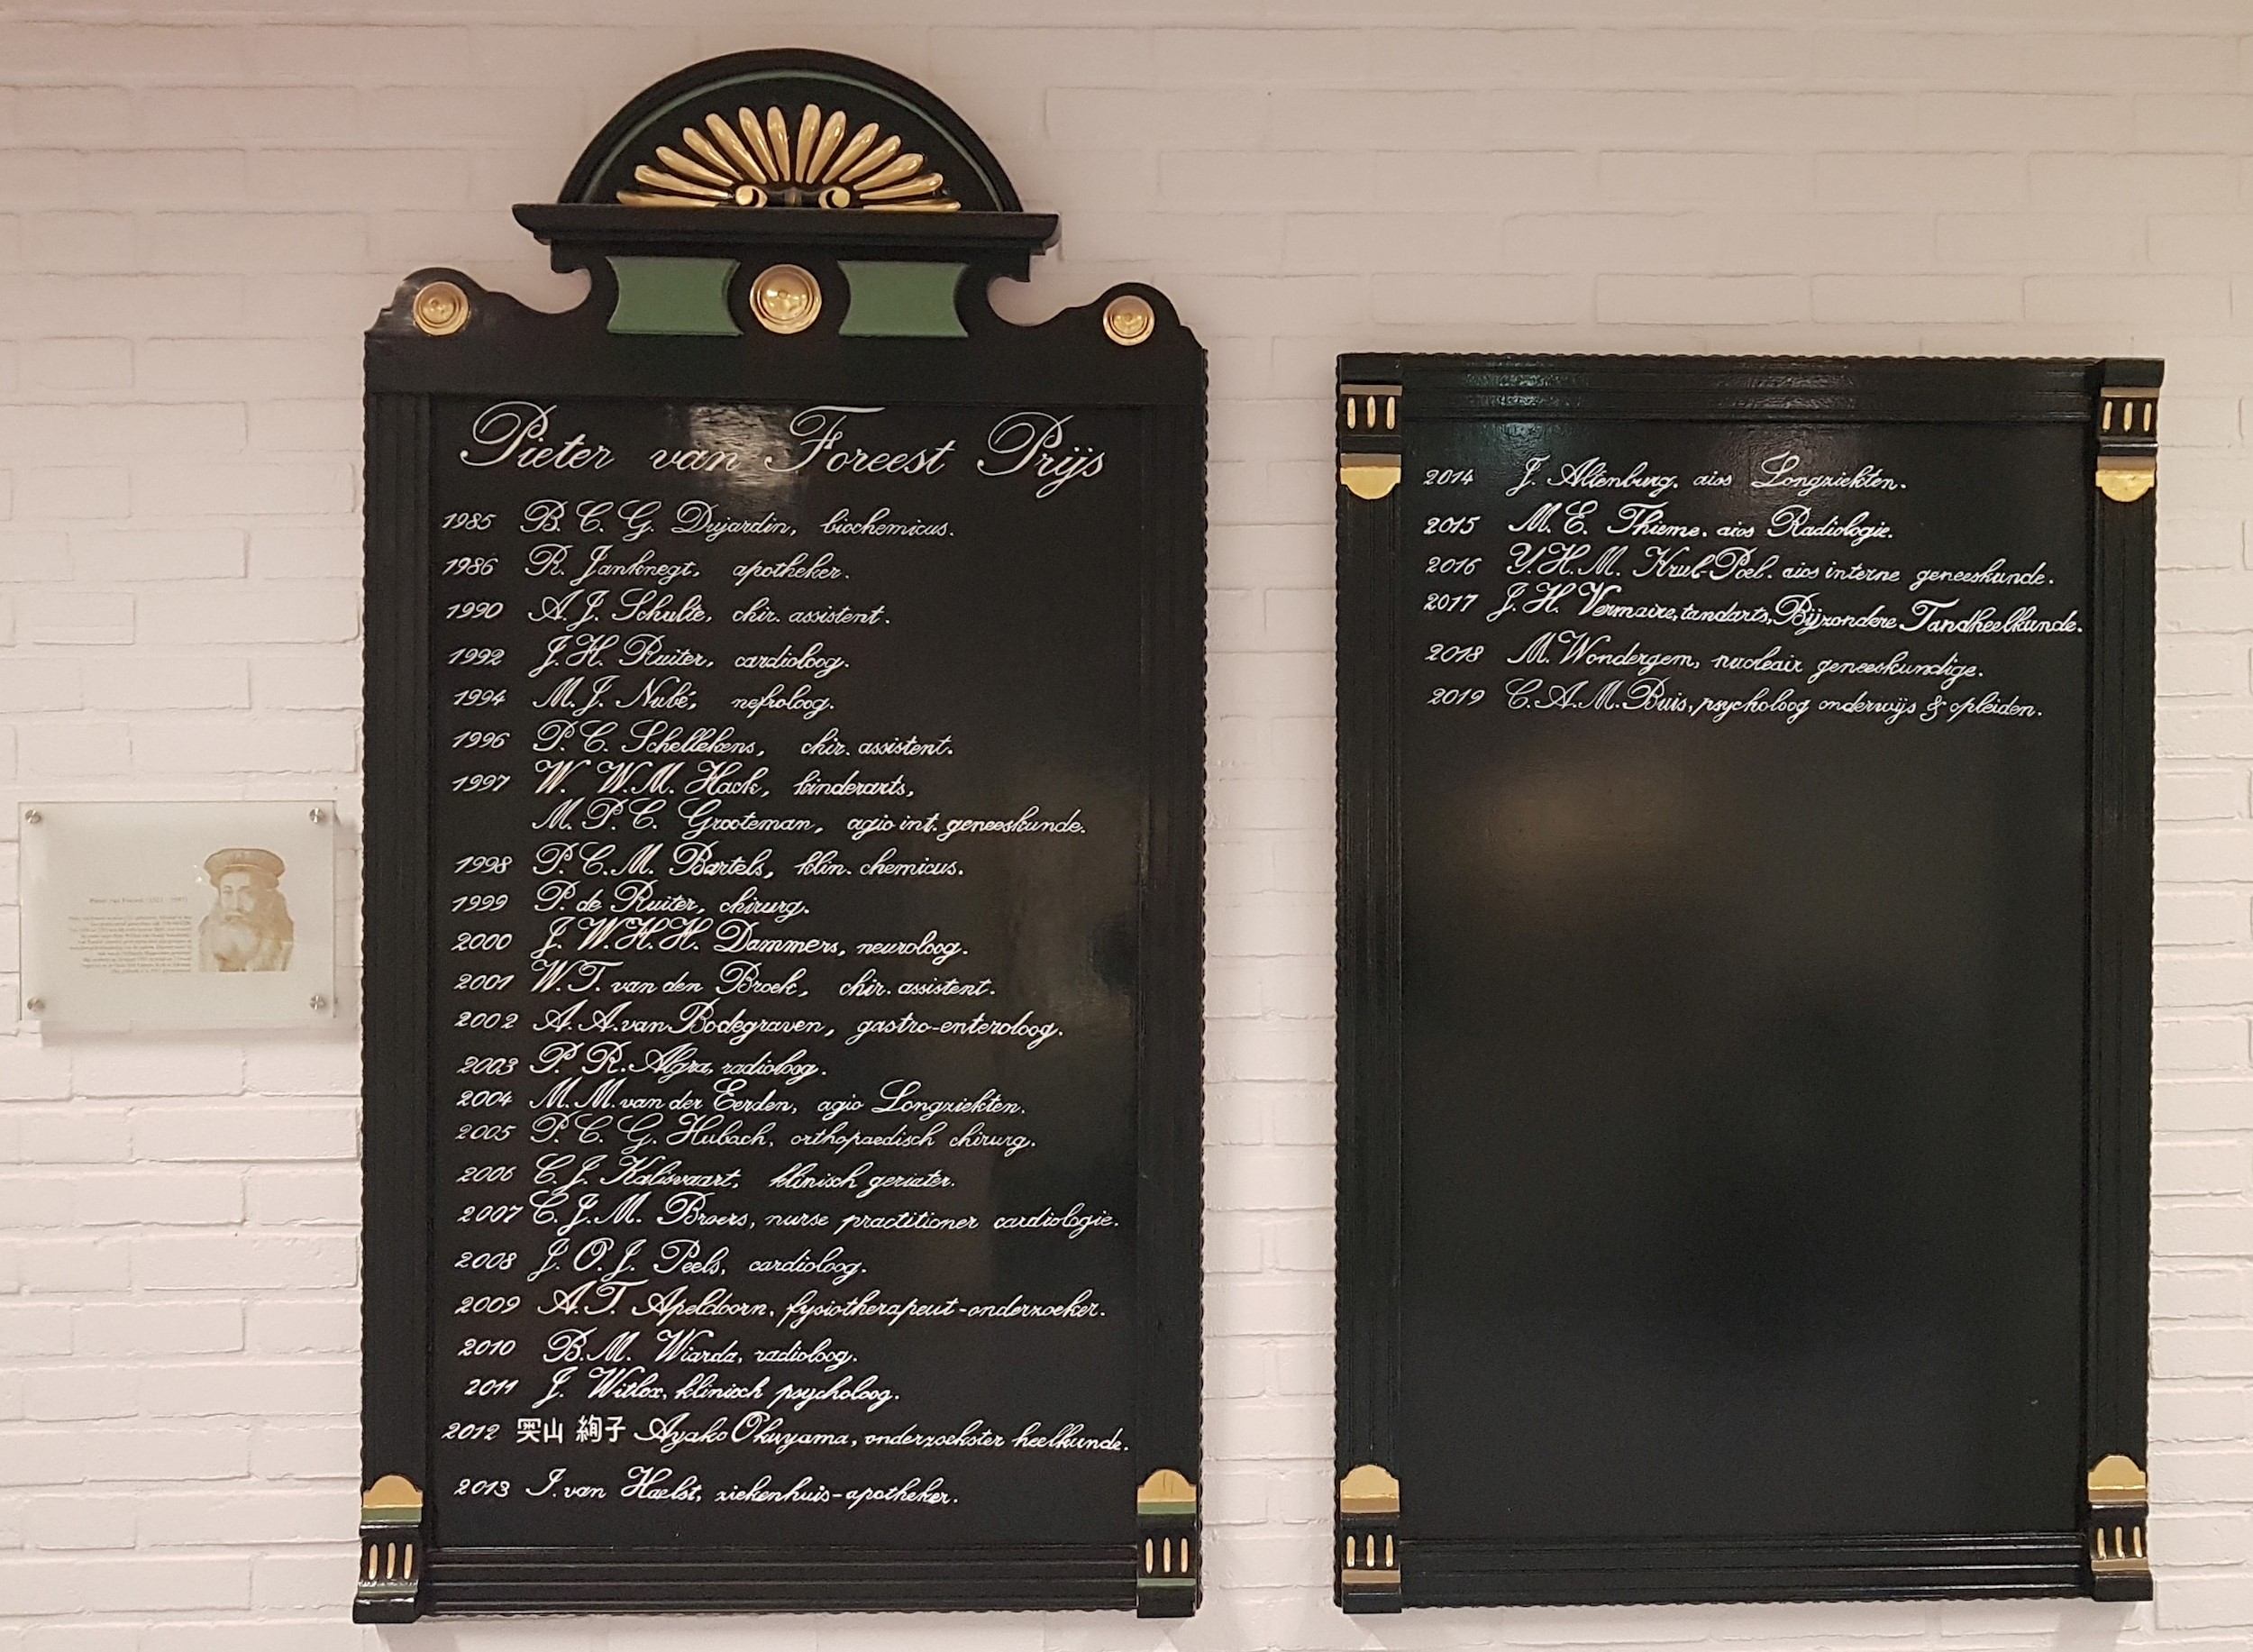 Pieter van Foreest Prijs
1985 B. C. G. Dujardin, biochemicus.
1986 R. Janknegt, apotheker.
1990 A. J. Schulte, chir. assistent.
1992 J. H. Ruiter, cardioloog.
1994 M. J. Nubé, nefroloog.
1996 P. C. Schellekens, chir. assistent.
1997 W. W. M. Hack, kinderarts,
M. P. C. Grooteman, agio int. geneeskunde.
1998 P. C. M. Bartels, klin. chemicus.
1999 P. de Ruiter, chirurg.
2000 J. W. H. H. Dammers, neuroloog.
2001 W. T. van den Broek, chir. assistent.
2002 A. A. van Bodegraven, gastro-enteroloog.
2003 P. R. Algra, radioloog.
2004 M. M. van der Eerden, agio Longziekten.
2005 P. C. G. Hubach, orthopaedisch chirurg.
2006 C. J. Kalisvaart, klinisch geriater.
2007 C. J. M. Broers, nurse practitioner cardiologie.
2008 J. O. J. Peels, cardioloog.
2009 A. T. Apeldoorn, fysiotherapeut-onderzoeker.
2010 B. M. Wiarda, radioloog.
2011 J. Witlox, klinisch psycholoog.
2012 奥山 絢子 Ayako Okuyama, onderzoekster heelkunde.
2013 I. van Haelst, ziekenhuis-apotheker.
2014 J. Altenburg, aios Longziekten.
2015 M. E. Thieme. aios Radiologie.
2016 Y. H. M. Krul-Poel. aios interne geneeskunde.
2017 J. H. Vermaire, tandarts, Bijzondere Tandheelkunde.
2018 M. Wondergem, nucleair geneeskundige.
2019 C. A. M. Buis, psycholoog onderwijs & opleiden.